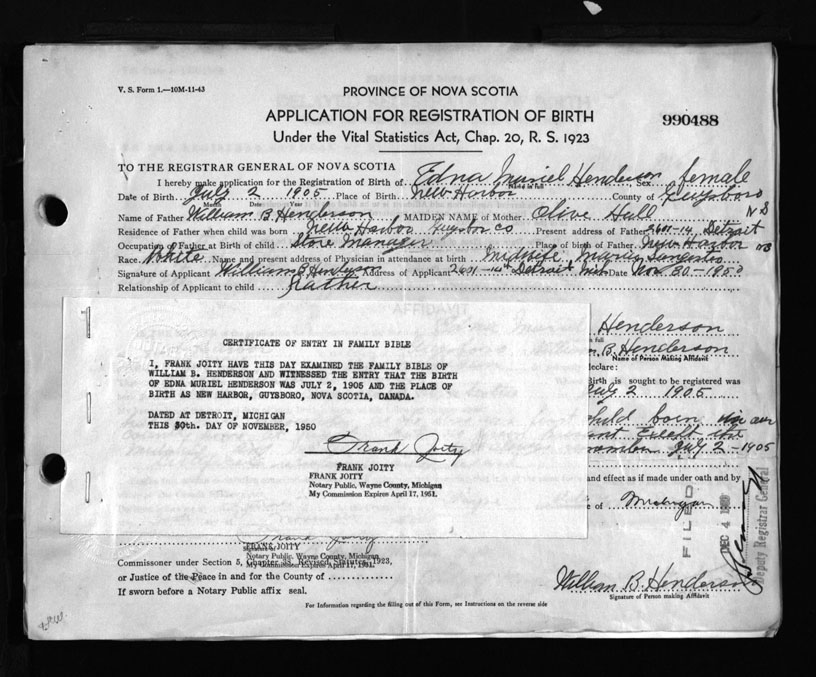 V. S. Form 1.—10M-11-43
PROVINCE OF NOVA SCOTIA
APPLICATION FOR REGISTRATION OF BIRTH
990488
Under the Vital Statistics Act, Chap. 20, R. S. 1923
TO THE REGISTRAR GENERAL OF NOVA SCOTIA
I hereby make application for the Registration of Birth of Edna Muriel Henderson Sex female
Name in full
Date of Birth July 2 1905 Place of Birth New Harbor County of Guysboro
Month Date Year
N S
Name of Father William B Henderson MAIDEN NAME of Mother Olive Hull
Residence of Father when child was born New Harbor Guysbor Co Present address of Father 2601-14 Detroit
Occupation of Father at Birth of child Store Manager Place of birth of Father New Harbor NS
Race White Name and present address of Physician in attendance at birth Midwife
Signature of Applicant William B Henderson Address of Applicant 2601-14th Detroit Mich Date Nov 30-1950
Relationship of Applicant to child Father
AFFIDAVIT
Henderson
B Henderson
Name of Person Making Affidavit
declare:
Birth is sought to be registered was
July 2 1905
child born
July 2-1905
and effect as if made under oath and by
of Michigan
CERTIFICATE OF ENTRY IN FAMILY BIBLE
I, FRANK JOITY HAVE THIS DAY EXAMINED THE FAMILY BIBLE OF
WILLIAM B. HENDERSON AND WITNESSED THE ENTRY THAT THE BIRTH
OF EDNA MURIEL HENDERSON WAS JULY 2, 1905 AND THE PLACE OF
BIRTH AS NEW HARBOR, GUYSBORO, NOVA SCOTIA, CANADA.
DATED AT DETROIT, MICHIGAN
THIS 30th. DAY OF NOVEMBER, 1950
Frank Joity
FRANK JOITY
FRANK JOITY
Notary Public, Wayne County, Michigan
My Commission Expires April 17, 1951.
FILED
DEC 4
Deputy Registrar General
Frank Joity
FRANK JOITY
Notary Public, Wayne County, Michigan
Commissioner under Section 5, Chapter 33, Revised Statutes, 1923,
My Commission Expires April 17, 1951.
or Justice of the Peace in and for the County of
If sworn before a Notary Public affix seal.
William B. Henderson
Signature of Person making Affidavit
For Information regarding the filling out of this Form, see Instructions on the reverse side